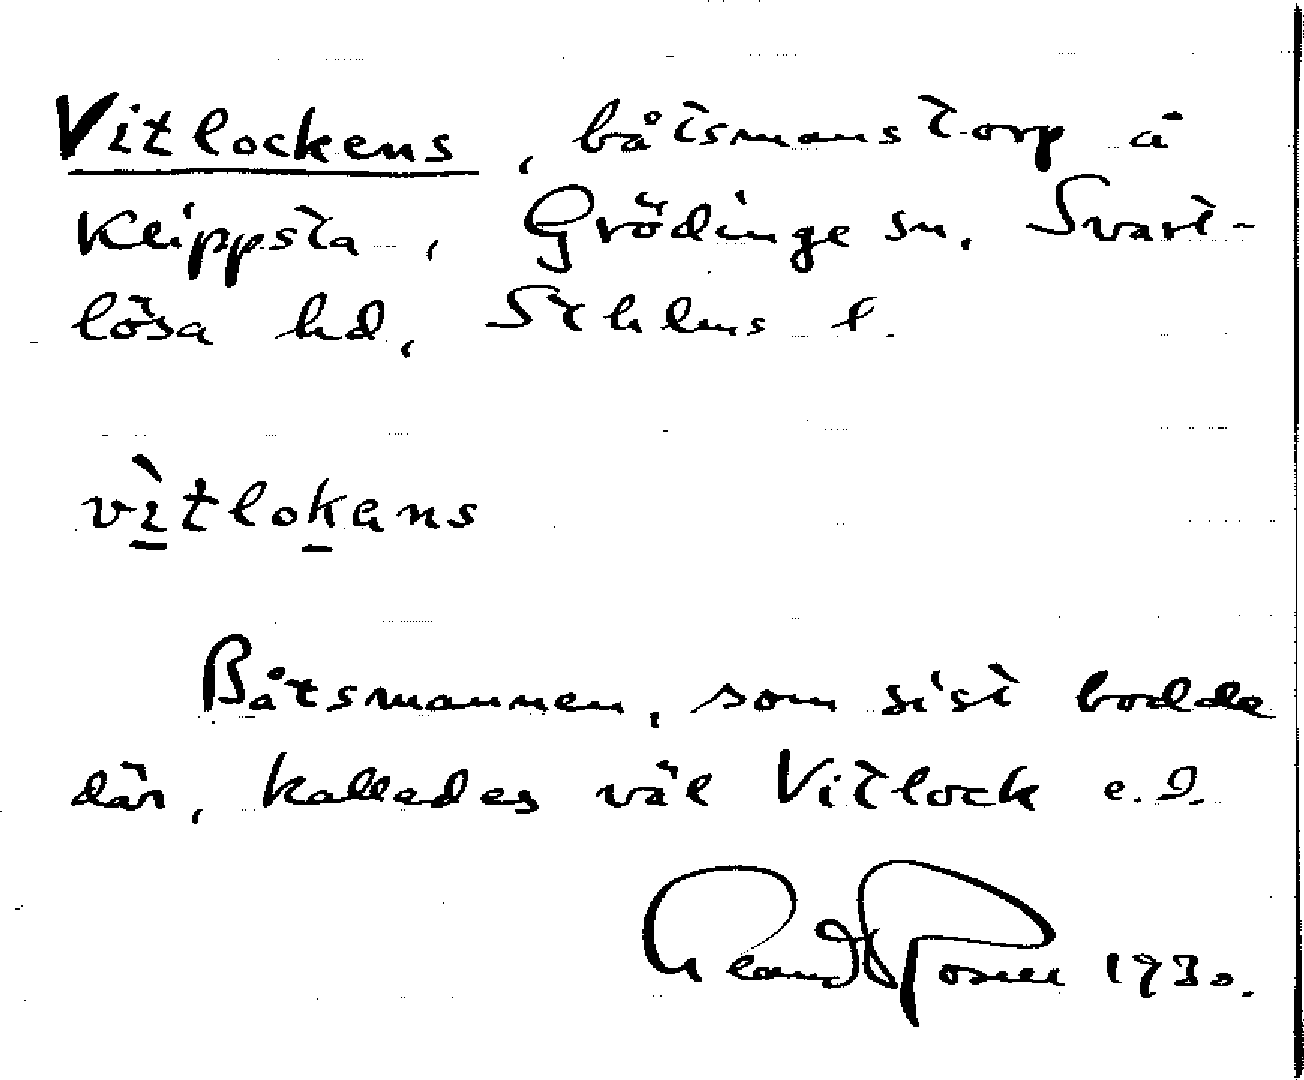 Vitlockens, båtsmanstorp å
Klippsta, Grödinge sn, Svart-
lösa hd, Sthlms l.
vìtlokans
Båtsmannen, som sist bodde
där, kallades väl Vitlock e.d.
1930.